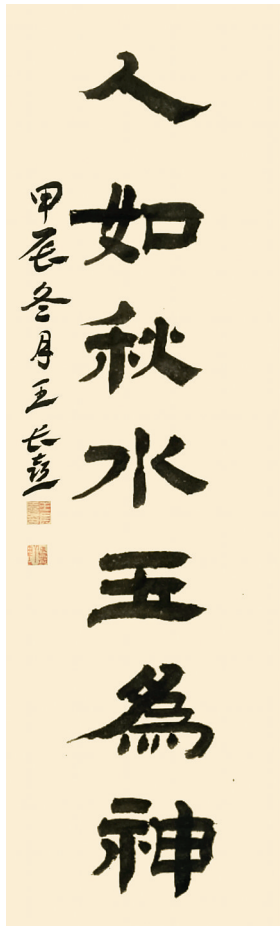 人如秋水玉為神
甲辰冬月王长